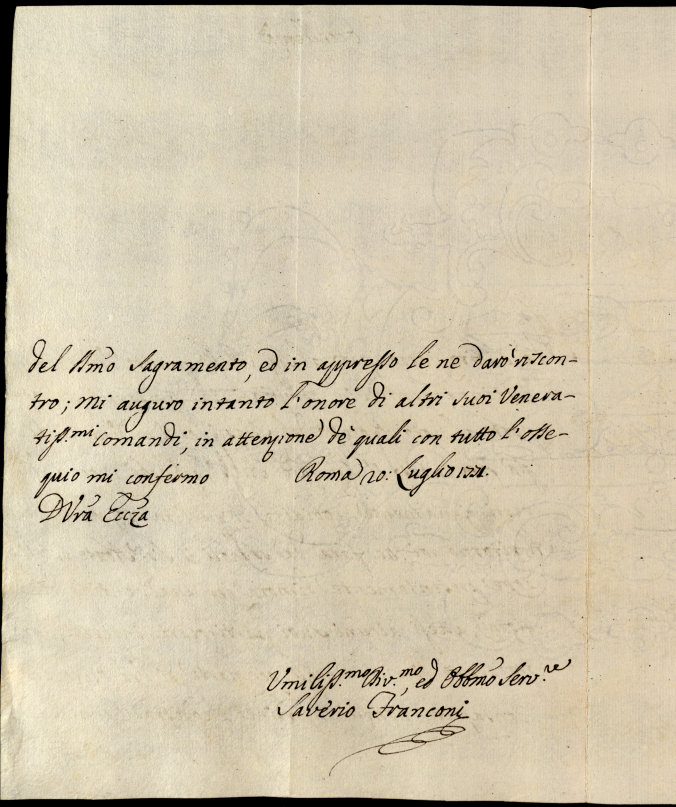 del SSm̃o Sagramento, ed in appresso le ne darò riscon-
tro; mi auguro intanto l'onore di altri suoi Venera-
tiss.mi Comandi, in attenzione de' quali con tutto l'osse-
quio mi confermo Roma 20: Luglio
D Vrã Eccza
Umiliss.mo Div.mo, ed Obbm̃o Serv.re
Saverio Franconi